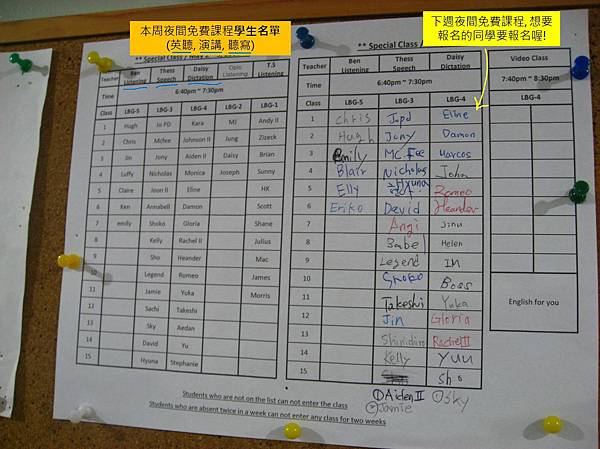 本周夜間免費課程學生名單
(英聽, 演講, 聽寫)
下週夜間免費課程, 想要
報名的同學要報名喔!
** Special Class /
Teacher Ben Listening Thess Speech Daisy Dictation Opic Listening T.S Listening
Time 6:40pm ~ 7:30pm
Class LBG-5 LBG-3 LBG-4 LBG-2 LBG-1
1 Hugh Jo PD Kara MJ Andy II
2 Chris Mcfee Johnson II Jung Zizeck
3 Jin Jony Aiden II Daisy Brian
4 Luffy Nicholas Monica Joseph Sunny
5 Claire Joon II Eline HK
6 Ken Annabell Damon Scott
7 emily Shoko Gloria Shane
8 Kelly Rachel II Julius
9 Sho Heander Mac
10 Legend Romeo James
11 Jamie Yuka Morris
12 Sachi Takeshi
13 Sky Aedan
14 David Yu
15 Hyuna Stephanie
** Special Class /
Teacher Ben Listening Thess Speech Daisy Dictation Video Class
Time 6:40pm ~ 7:30pm 7:40pm ~ 8:30pm
Class LBG-5 LBG-3 LBG-4 LBG-4
1 Chris Eline
2 Hugh Jony Damon
3 Emily Mc.Fee Marcos
4 Blair Nicholas John
5 Elly Hyuna Romeo
6 Eriko David Heander
7 Angi Jinu
8 Babel Helen
9 Legend IM
10 Shoko Boss
11 Takeshi Yuka
12 Jin Gloria
13 Shinichiro Rachel II
14 Kelly Yuu
15 Sho
English for you
① Aiden II ② Sky
② Jamie
Students who are not on the list can not enter the class
Students who are absent twice in a week can not enter any class for two weeks